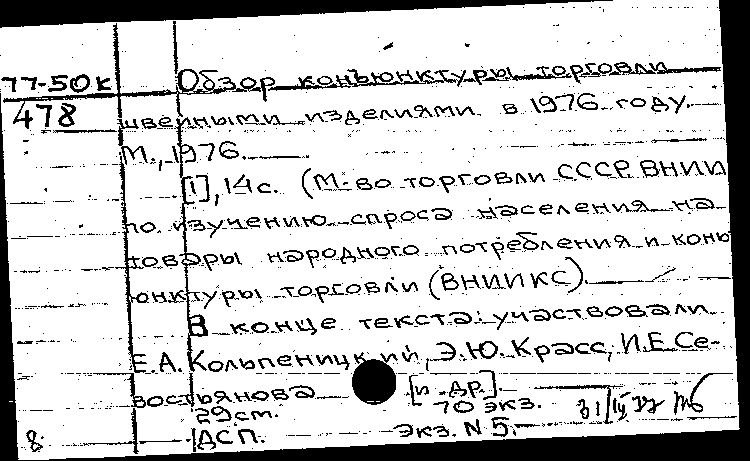 77-50к Обзор конъюнктуры торговли
478 швейными изделиями в 1976 году.
М., 1976.
[1], 14с. (М-во торговли СССР. ВНИИ
по изучению спроса населения на
товары народного потребления и конъ
юнктуры торговли (ВНИИКС).
В конце текста: участвовали
Е.А. Кольпеницкий, Э.Ю. Красс, И.Е. Се-
востьянова [и др.].
29см. 70 экз.
8. ДСП. Экз. N 5.